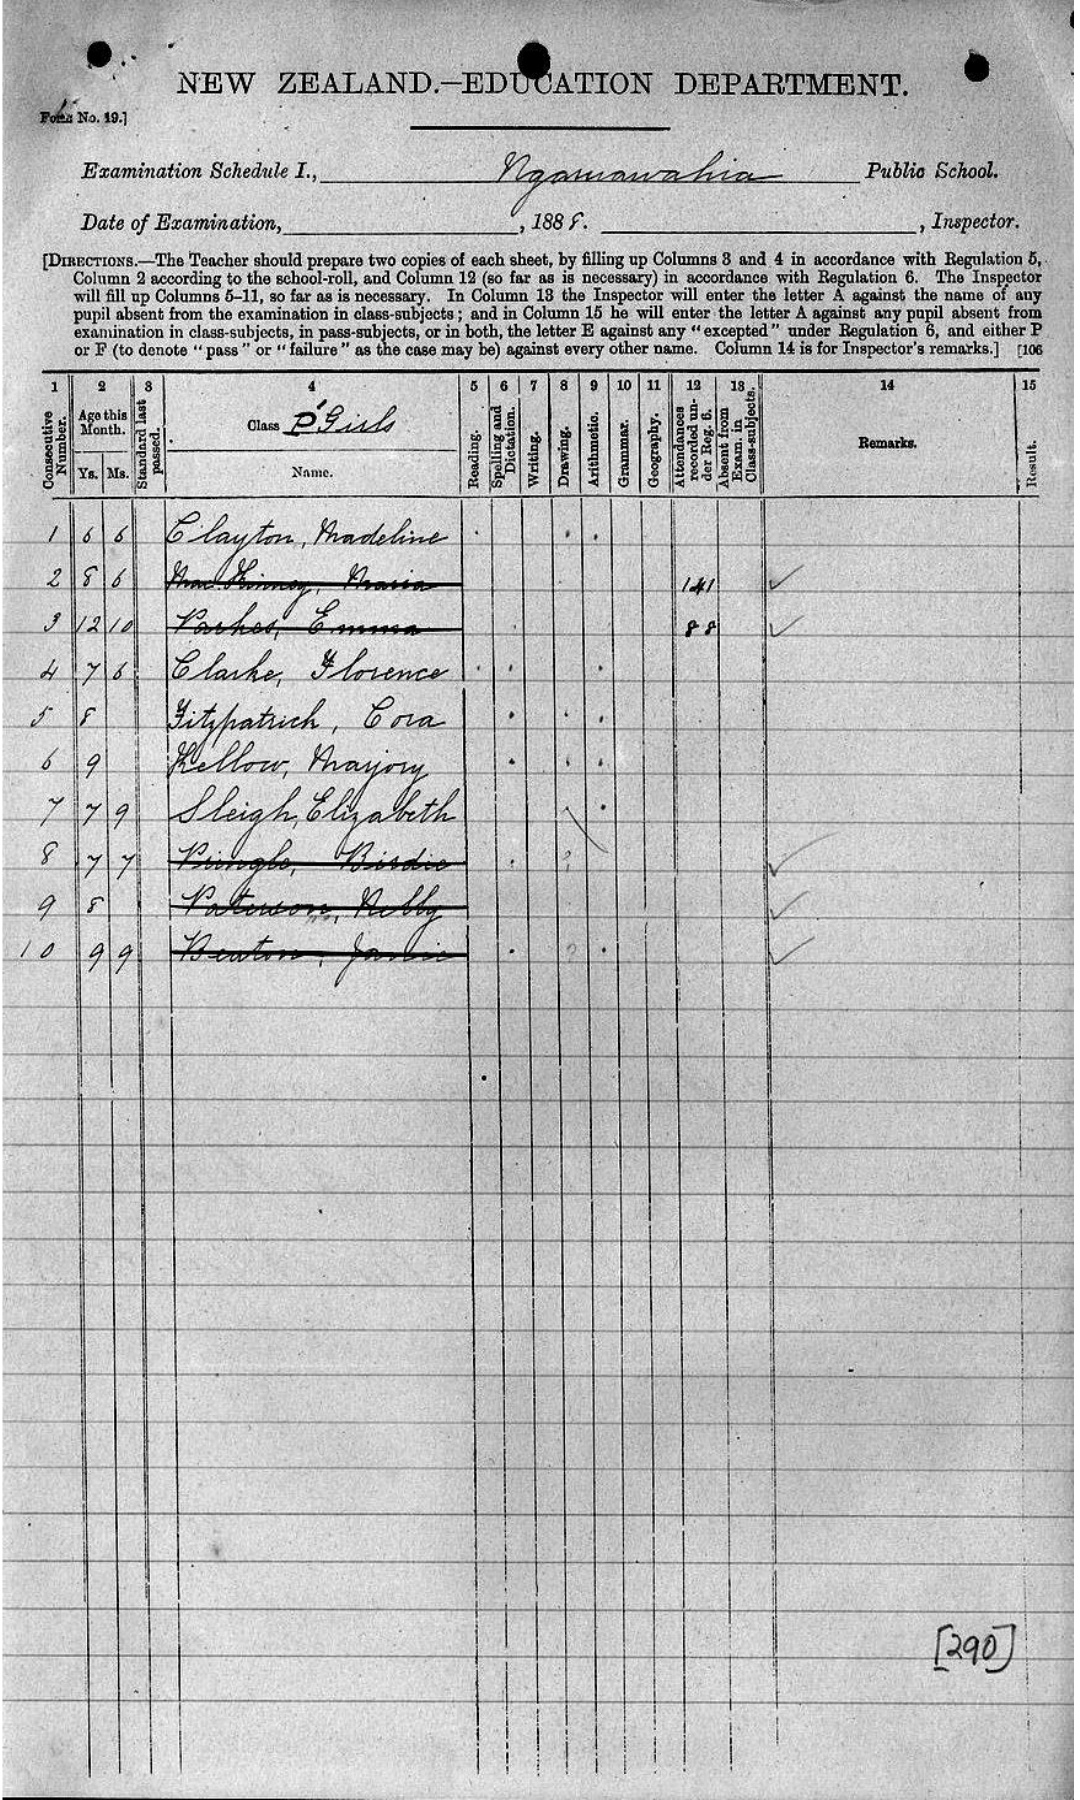 NEW ZEALAND.—EDUCATION DEPARTMENT.
Form No. 19.]
Examination Schedule I., Ngaruawahia Public School.
Date of Examination, , 1888. , Inspector.
[DIRECTIONS.—The Teacher should prepare two copies of each sheet, by filling up Columns 3 and 4 in accordance with Regulation 5,
Column 2 according to the school-roll, and Column 12 (so far as is necessary) in accordance with Regulation 6. The Inspector
will fill up Columns 5–11, so far as is necessary. In Column 13 the Inspector will enter the letter A against the name of any
pupil absent from the examination in class-subjects; and in Column 15 he will enter the letter A against any pupil absent from
examination in class-subjects, in pass-subjects, or in both, the letter E against any "excepted" under Regulation 6, and either P
or F (to denote "pass" or "failure" as the case may be) against every other name. Column 14 is for Inspector's remarks.] [106
1 2 3 4 5 6 7 8 9 10 11 12 13 14 15
Consecutive Number. Age this Month. Ys. Ms. Standard last passed. Class P' Girls Name. Reading. Spelling and Dictation. Writing. Drawing. Arithmetic. Grammar. Geography. Attendances recorded under Reg. 6. Absent from Exam. in Class-subjects. Remarks. Result.
1 6 6 Clayton, Madeline
2 8 6 MacKinney, Maria 141 ✓
3 12 10 Parkes, Emma 88 ✓
4 7 6 Clarke, Florence
5 8 Fitzpatrick, Cora
6 9 Kellow, Marjory
7 7 9 Sleigh, Elizabeth
8 7 7 Pringle, Birdie ✓
9 8 Paterson, Nelly ✓
10 9 9 Beaton, Janie ✓
[290]